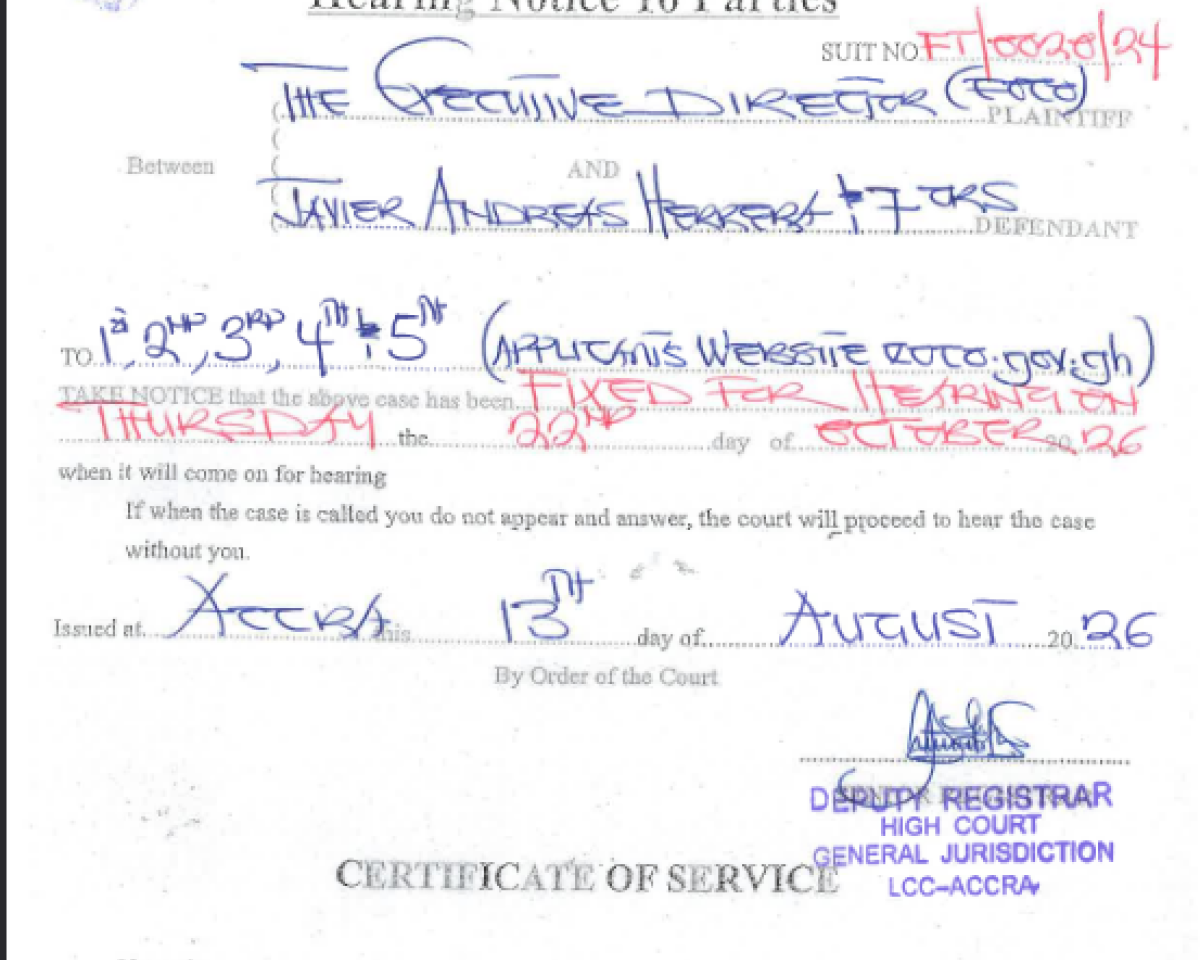 Hearing Notice To Parties
SUIT NO. FT/0020/24
THE EXECUTIVE DIRECTOR (EOCO)
PLAINTIFF
Between AND
JAVIER ANDREAS HERRERA & 7 ORS
DEFENDANT
TO 1st, 2ND, 3RD, 4TH & 5TH (APPLICANTS WEBSITE EOCO.gov.gh)
TAKE NOTICE that the above case has been FIXED FOR HEARING ON
THURSDAY the 22ND day of OCTOBER 2026
when it will come on for hearing
If when the case is called you do not appear and answer, the court will proceed to hear the case
without you.
Issued at ACCRA this 13TH day of AUGUST 2026
By Order of the Court
DEPUTY REGISTRAR
HIGH COURT
GENERAL JURISDICTION
LCC-ACCRA
CERTIFICATE OF SERVICE